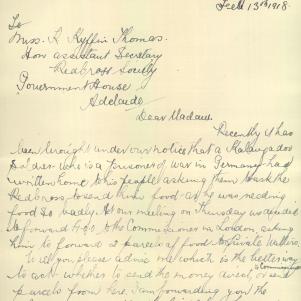 Feb 13th 1918.
To
Miss. R Kyffin Thomas.
Hon assistant Secretary
Red Cross Society
Government House
Adelaide
Dear Madam.
Recently it has
been brought under our notice that a
Soldier who is a prisoner of war in Germany had
written home to his people asking them to ask the
Red Cross to send him food as he was needing
food so badly. At our meeting on Thursday we decided
to forward to the Commissioner in London asking
him to forward a parcel of food to Private
Will you please advise me which is the better way
to act whether to send the money direct to Commissioner
parcels from her. I am forwarding you the